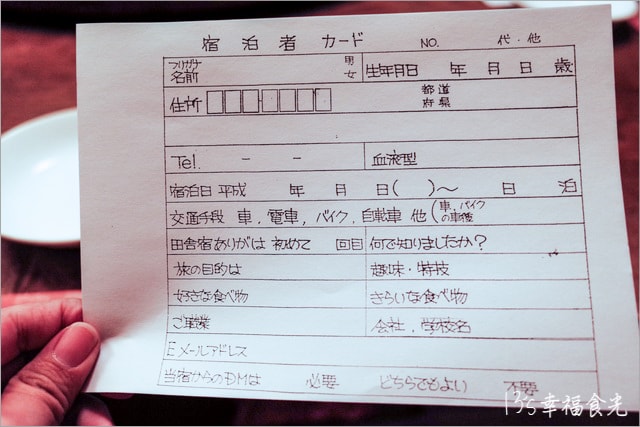 宿泊者 カード NO. 代・他
フリガナ 男
名前 女 生年月日 年 月 日 歳
住所 都道
府県
Tel. - - 血液型
宿泊日 平成 年 月 日( )～ 日 泊
交通手段 車, 電車, バイク, 自転車 他 (車, バイク
の車種
田舎宿ありがは 初めて 回目 何で知りましたか?
旅の目的は 趣味・特技
好きな食べ物 きらいな食べ物
ご職業 会社, 学校名
Eメールアドレス
当宿からのDMは 必要 どちらでもよい 不要
135幸福食光